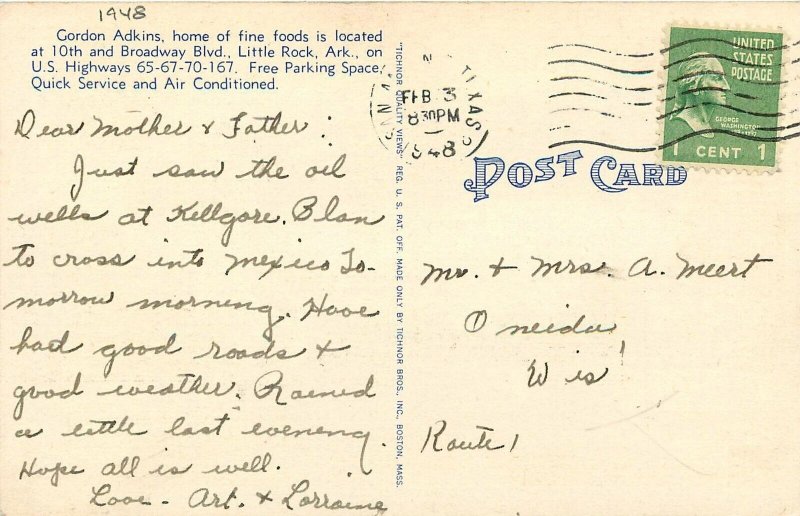 1948
Gordon Adkins, home of fine foods is located
at 10th and Broadway Blvd., Little Rock, Ark., on
U.S. Highways 65-67-70-167. Free Parking Space,
Quick Service and Air Conditioned.
Dear Mother & Father:
Just saw the oil
wells at Kellgore. Plan
to cross into Mexico To-
morrow morning. Have
had good roads &
good weather. Rained
a little last evening.
Hope all is well.
Love - Art. & Lorraine
"TICHNOR QUALITY VIEWS" REG. U. S. PAT. OFF. MADE ONLY BY TICHNOR BROS., INC., BOSTON, MASS.
TEXAS
FEB 3
8 30 PM
1948
UNITED
STATES
POSTAGE
GEORGE
WASHINGTON
1 CENT 1
POST CARD
Mr. & Mrs. A. Meert
Oneida,
Wis
Route 1